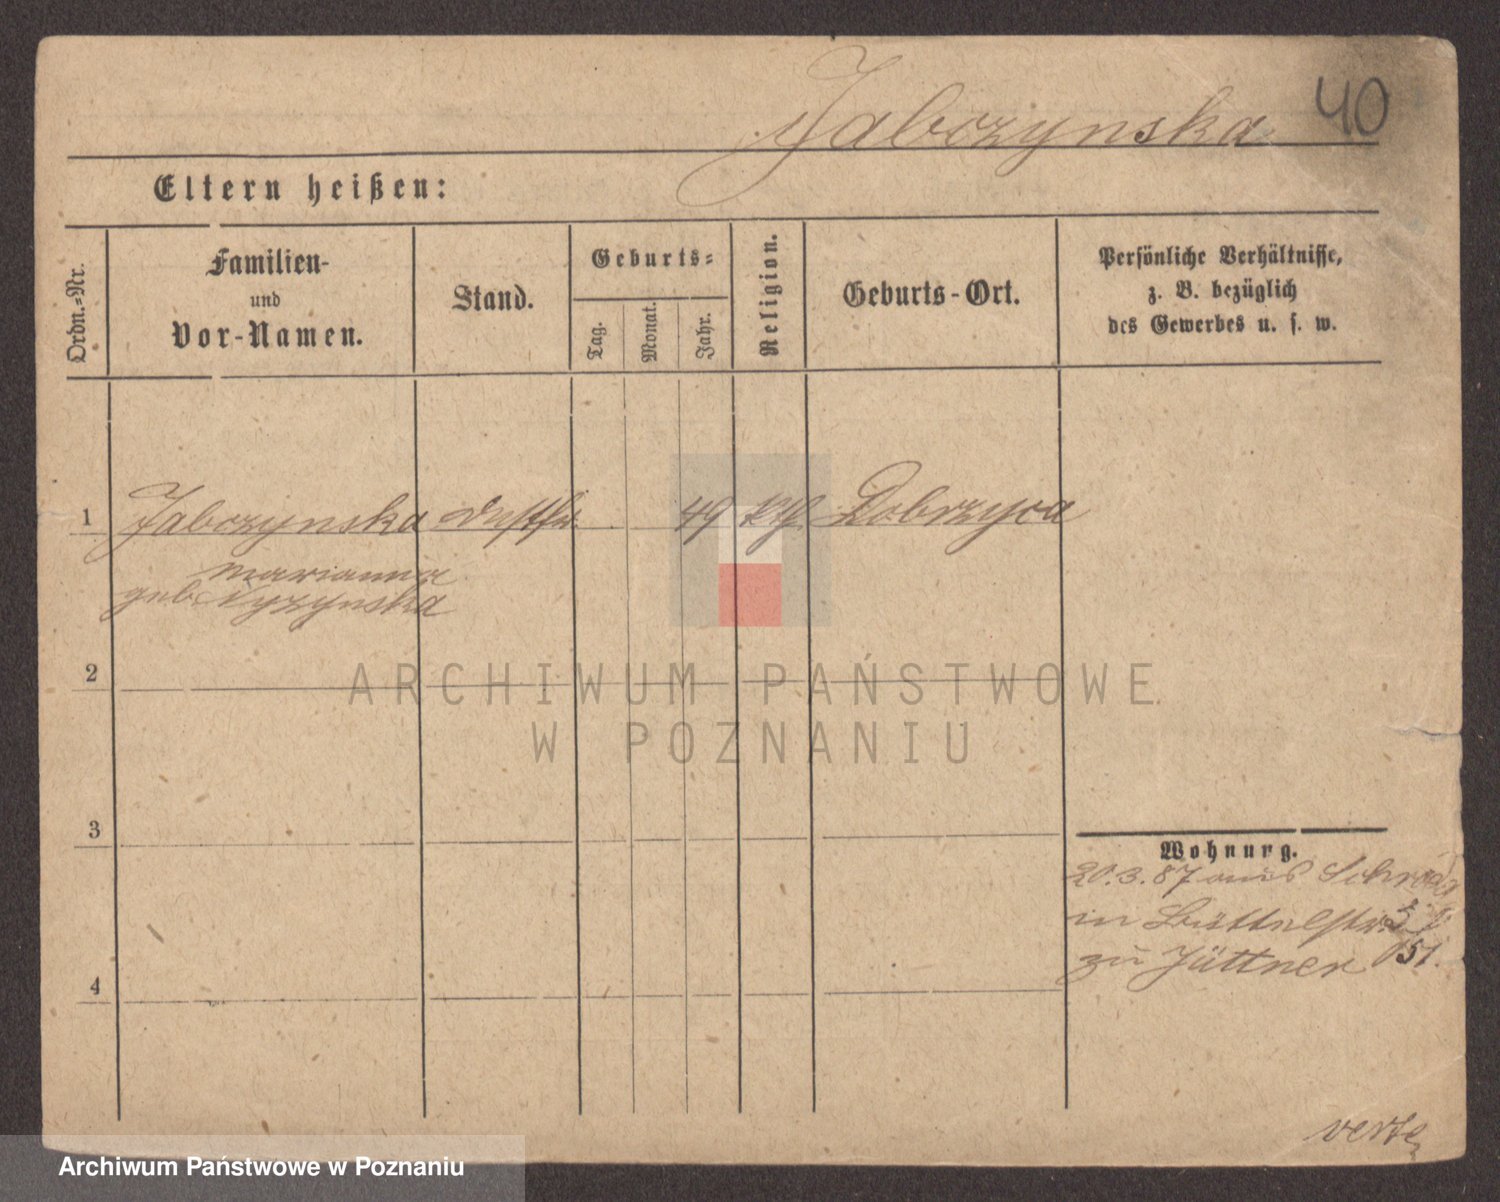 Jabczynska 40
Eltern heißen:
Ordn.=Nr.
Familien-
und
Vor-Namen.
Stand.
Geburts=
Tag.
Monat.
Jahr.
Religion.
Geburts-Ort.
Persönliche Verhältnisse,
z. B. bezüglich
des Gewerbes u. s. w.
1 Jabczynska 49 kth Dobrzyca
Marianna
geb.
2
ARCHIWUM PAŃSTWOWE
W POZNANIU
3
Wohnung.
20.3.87 aus Schroda
in Büttelstr.
zu Jüttner 51.
4
verte
Archiwum Państwowe w Poznaniu